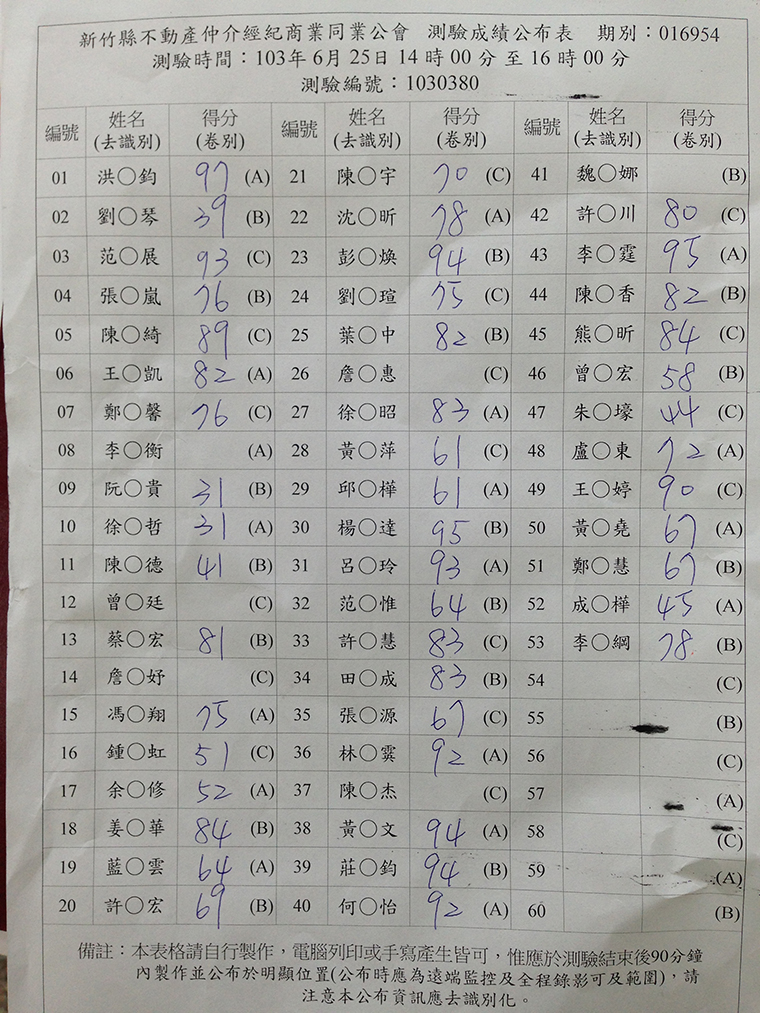 新竹縣不動產仲介經紀商業同業公會 測驗成績公布表 期別：016954
測驗時間：103年6月25日14時00分至16時00分
測驗編號：1030380
編號 姓名(去識別) 得分(卷別) 編號 姓名(去識別) 得分(卷別) 編號 姓名(去識別) 得分(卷別)
01 洪〇鈞 97 (A) 21 陳〇宇 70 (C) 41 魏〇娜 (B)
02 劉〇琴 39 (B) 22 沈〇昕 78 (A) 42 許〇川 80 (C)
03 范〇展 93 (C) 23 彭〇煥 94 (B) 43 李〇霆 95 (A)
04 張〇嵐 76 (B) 24 劉〇瑄 75 (C) 44 陳〇香 82 (B)
05 陳〇綺 89 (C) 25 葉〇中 82 (B) 45 熊〇昕 84 (C)
06 王〇凱 82 (A) 26 詹〇惠 (C) 46 曾〇宏 58 (B)
07 鄭〇馨 76 (C) 27 徐〇昭 83 (A) 47 朱〇壕 44 (C)
08 李〇衡 (A) 28 黃〇萍 61 (C) 48 盧〇東 72 (A)
09 阮〇貴 31 (B) 29 邱〇樺 61 (A) 49 王〇婷 90 (C)
10 徐〇哲 31 (A) 30 楊〇達 95 (B) 50 黃〇堯 67 (A)
11 陳〇德 41 (B) 31 呂〇玲 93 (A) 51 鄭〇慧 67 (B)
12 曾〇廷 (C) 32 范〇惟 64 (B) 52 成〇樺 45 (A)
13 蔡〇宏 81 (B) 33 許〇慧 83 (C) 53 李〇綱 78 (B)
14 詹〇妤 (C) 34 田〇成 83 (B) 54 (C)
15 馮〇翔 75 (A) 35 張〇源 67 (C) 55 (B)
16 鍾〇虹 51 (C) 36 林〇霙 92 (A) 56 (C)
17 余〇修 52 (A) 37 陳〇杰 (C) 57 (A)
18 姜〇華 84 (B) 38 黃〇文 94 (A) 58 (C)
19 藍〇雲 64 (A) 39 莊〇鈞 94 (B) 59 (A)
20 許〇宏 69 (B) 40 何〇怡 92 (A) 60 (B)
備註：本表格請自行製作，電腦列印或手寫產生皆可，惟應於測驗結束後90分鐘
內製作並公布於明顯位置(公布時應為遠端監控及全程錄影可及範圍)，請
注意本公布資訊應去識別化。